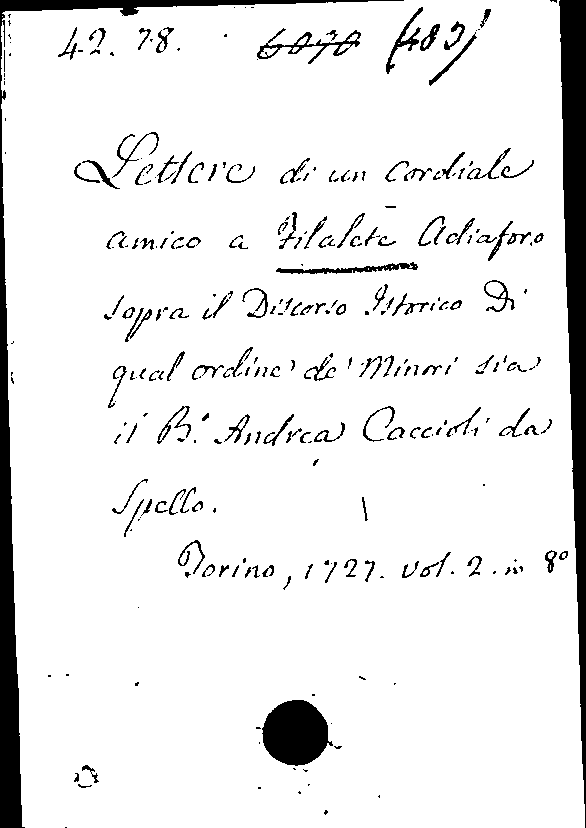 42. 78. 6070 (483)
Lettere di un cordiale
amico a Filalete Adiaforo
sopra il Discorso Istorico Di
qual ordine de' Minori sia
il B.º Andrea Caccioli da
Spello.
Torino, 1727. vol. 2. in 8º